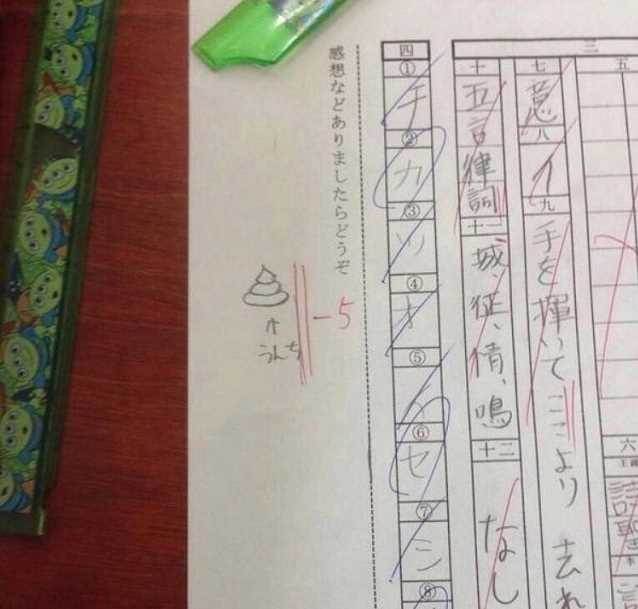 三
五
六
七
意
八
イ
九
手を揮いてここより去れ
十
五言律詞
十一
城、征、情、鳴
十二
なし
四
①
チ
②
カ
③
ソ
④
オ
⑤
⑥
セ
⑦
シ
⑧
感想などありましたらどうぞ
うんち
-5